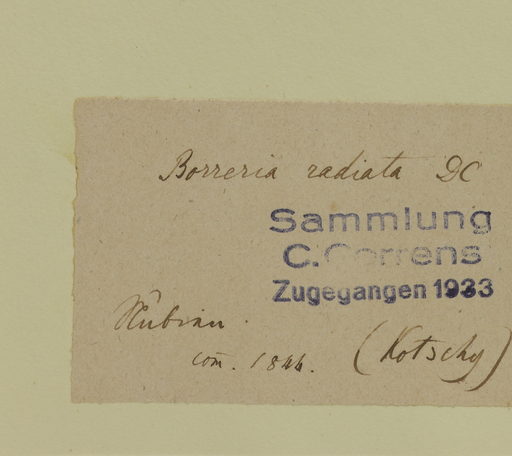 Borreria radiata DC
Sammlung
C. Correns
Zugegangen 1933
Nubien.
com̄. 1844. (Kotschy)